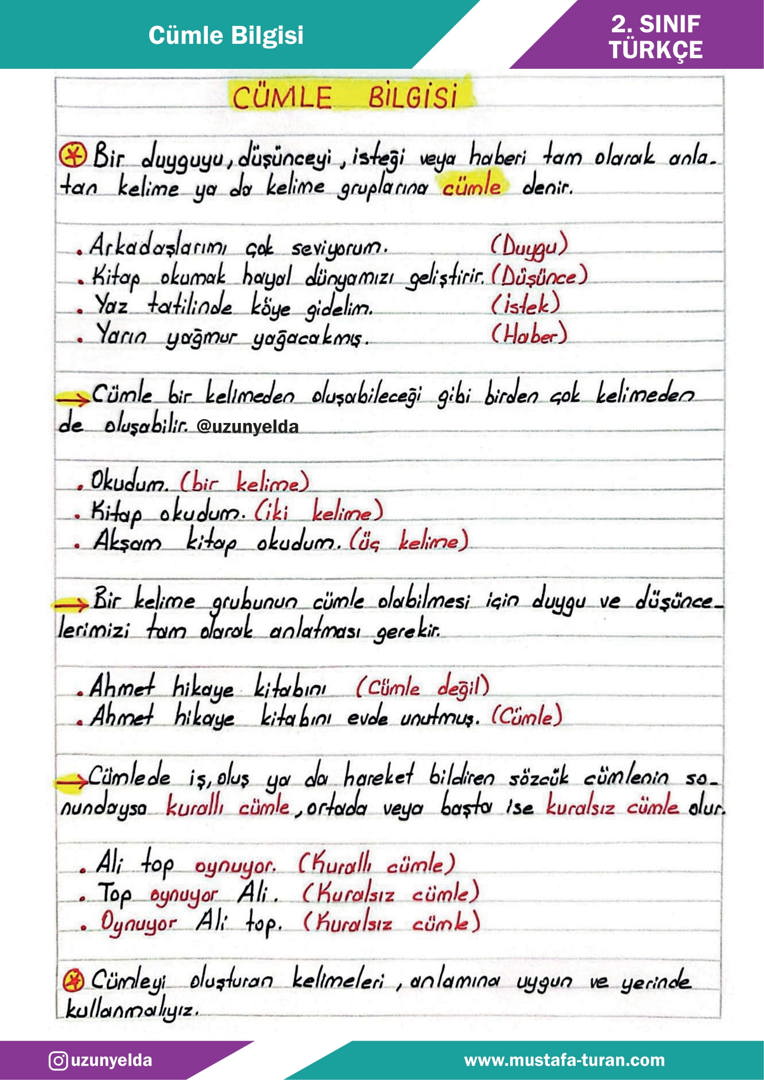 Cümle Bilgisi
2. SINIF
TÜRKÇE
CÜMLE BİLGİSİ
Bir duyguyu, düşünceyi, isteği veya haberi tam olarak anla-
tan kelime ya da kelime gruplarına cümle denir.
. Arkadaşlarımı çok seviyorum. (Duygu)
. Kitap okumak hayal dünyamızı geliştirir. (Düşünce)
. Yaz tatilinde köye gidelim. (istek)
. Yarın yağmur yağacakmış. (Haber)
→Cümle bir kelimeden oluşabileceği gibi birden çok kelimeden
de oluşabilir. @uzunyelda
. Okudum. (bir kelime)
. Kitap okudum. (iki kelime)
. Akşam kitap okudum. (üç kelime)
→Bir kelime grubunun cümle olabilmesi için duygu ve düşünce-
lerimizi tam olarak anlatması gerekir.
. Ahmet hikaye kitabını (Cümle değil)
. Ahmet hikaye kitabını evde unutmuş. (Cümle)
→Cümlede iş, oluş ya da hareket bildiren sözcük cümlenin so-
nundaysa kurallı cümle, ortada veya başta ise kuralsız cümle olur.
. Ali top oynuyor. (Kurallı cümle)
. Top oynuyor Ali. (Kuralsız cümle)
. Oynuyor Ali top. (Kuralsız cümle)
Cümleyi oluşturan kelimeleri, anlamına uygun ve yerinde
kullanmalıyız.
uzunyelda
www.mustafa-turan.com